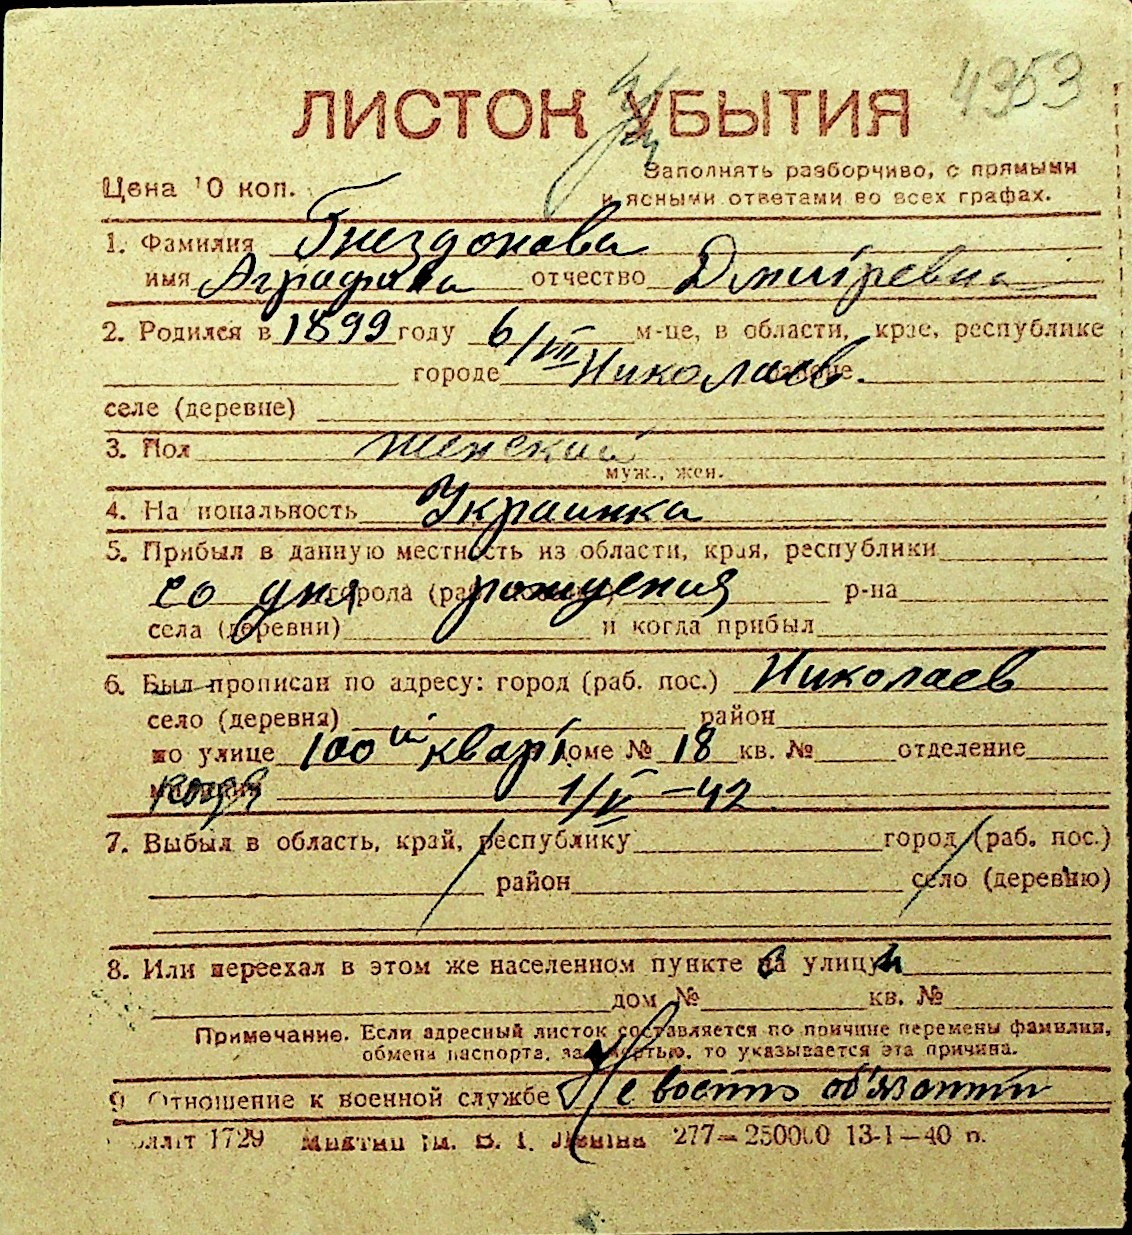 4353
ЛИСТОК УБЫТИЯ
Цена 10 коп.
Заполнять разборчиво, с прямыми
и ясными ответами во всех графах.
1. Фамилия Гнездокова
имя Аграфена отчество Дмитревна
2. Родился в 1899 году 6/VIII м-це, в области, крае, республике
городе Николаев
селе (деревне)
3. Пол женский
муж., жен.
4. Национальность Украинка
5. Прибыл в данную местность из области, края, республики
со дня города рождения р-на
села (деревни) и когда прибыл
6. Был прописан по адресу: город (раб. пос.) Николаев
село (деревня) район
по улице 100ый кварт. доме № 18 кв. № отделение
1/V-42
7. Выбыл в область, край, республику город (раб. пос.)
район село (деревню)
8. Или переехал в этом же населенном пункте на улицу
дом № кв. №
Примечание. Если адресный листок составляется по причине перемены фамилии,
обмена паспорта, за смертью, то указывается эта причина.
9. Отношение к военной службе Не воен об'язан
1729 ім. В. І. Леніна 277—250000 13-1—40 п.